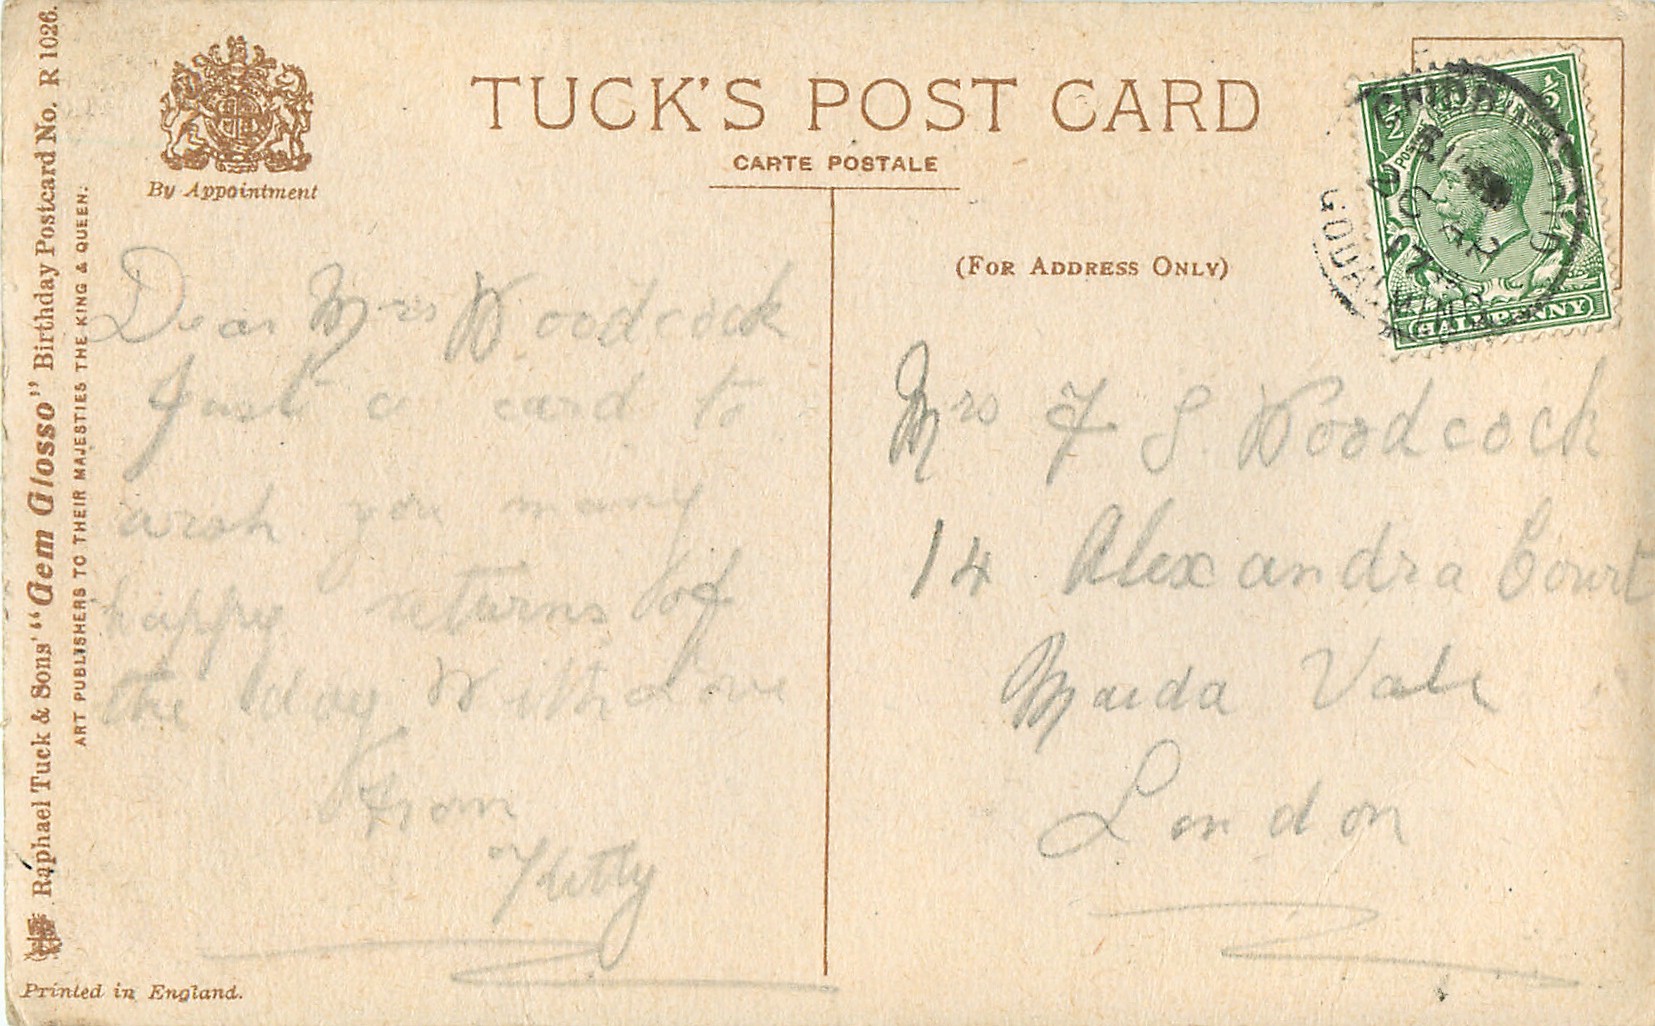 TUCK'S POST CARD
CARTE POSTALE
By Appointment
(FOR ADDRESS ONLY)
Raphael Tuck & Sons' "Gem Glosso" Birthday Postcard No. R 1026.
ART PUBLISHERS TO THEIR MAJESTIES THE KING & QUEEN.
Printed in England.
Dear Mrs Woodcock
Just a card to
wish you many
happy returns of
the day With Love
From
Kitty
Mrs F S Woodcock
14 Alexandra Court
Maida Vale
London
½ ½
HALFPENNY
GODALMING